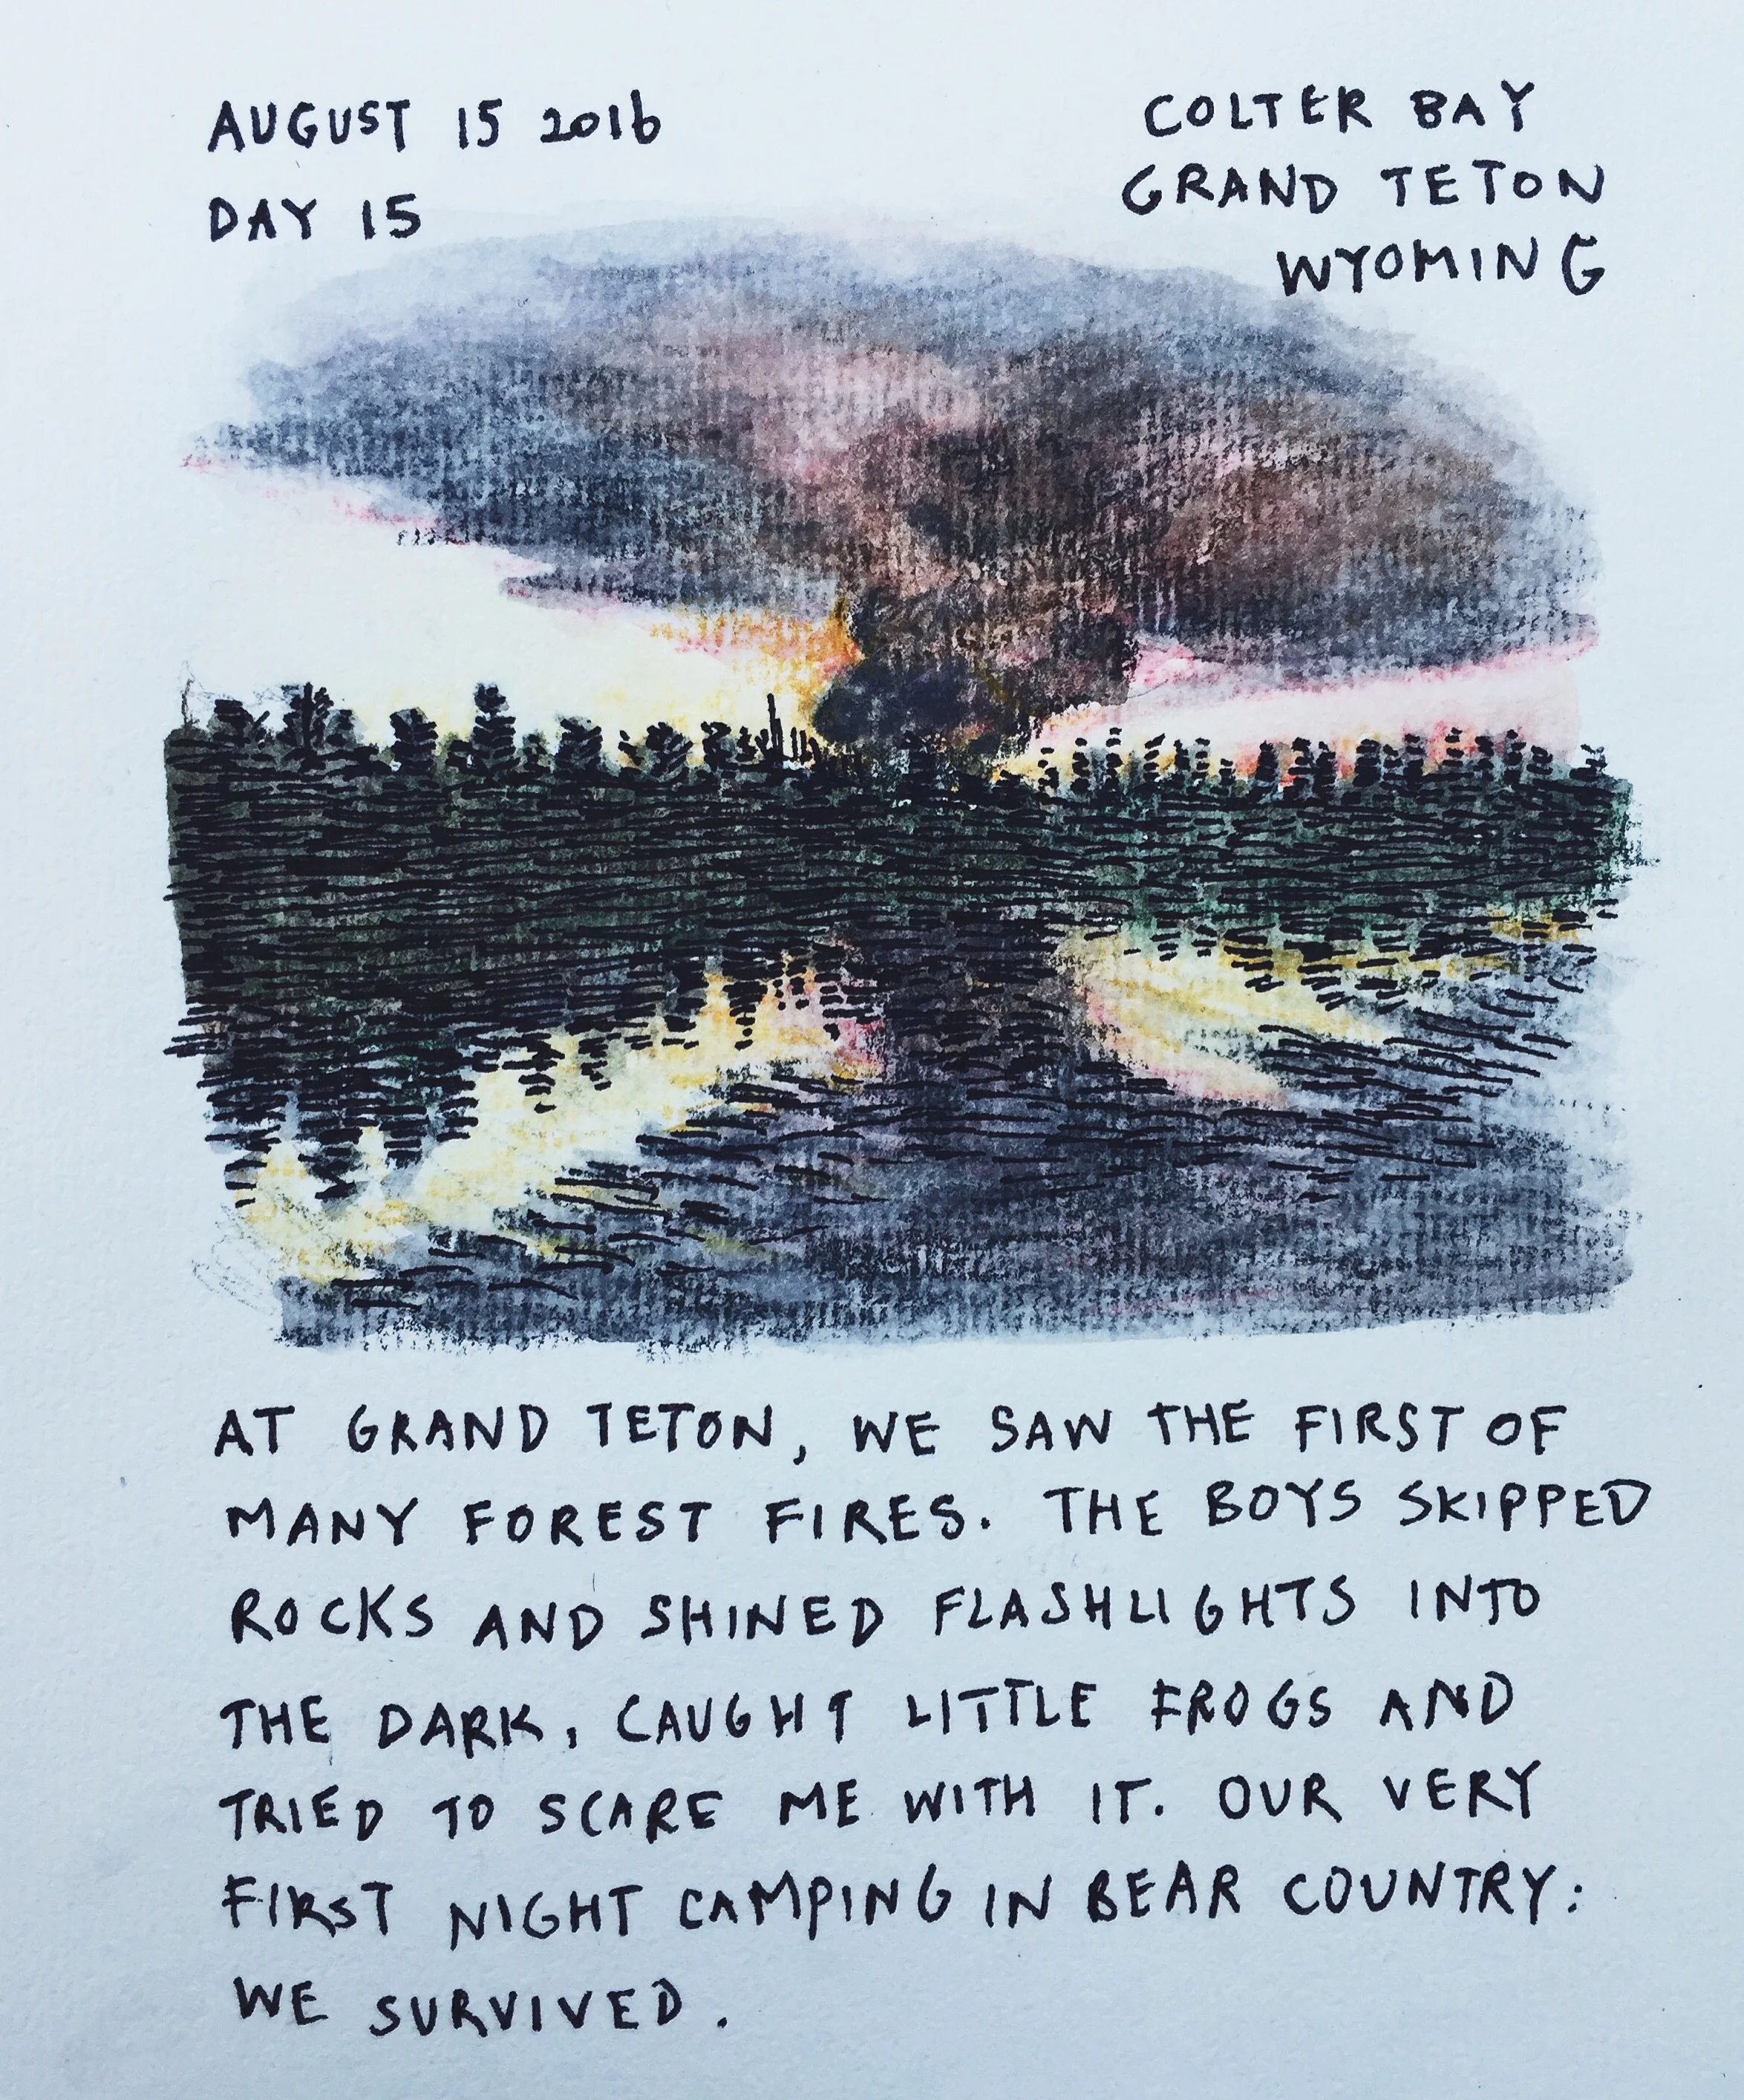 AUGUST 15 2016
DAY 15
COLTER BAY
GRAND TETON
WYOMING
AT GRAND TETON, WE SAW THE FIRST OF
MANY FOREST FIRES. THE BOYS SKIPPED
ROCKS AND SHINED FLASHLIGHTS INTO
THE DARK, CAUGHT LITTLE FROGS AND
TRIED TO SCARE ME WITH IT. OUR VERY
FIRST NIGHT CAMPING IN BEAR COUNTRY:
WE SURVIVED.